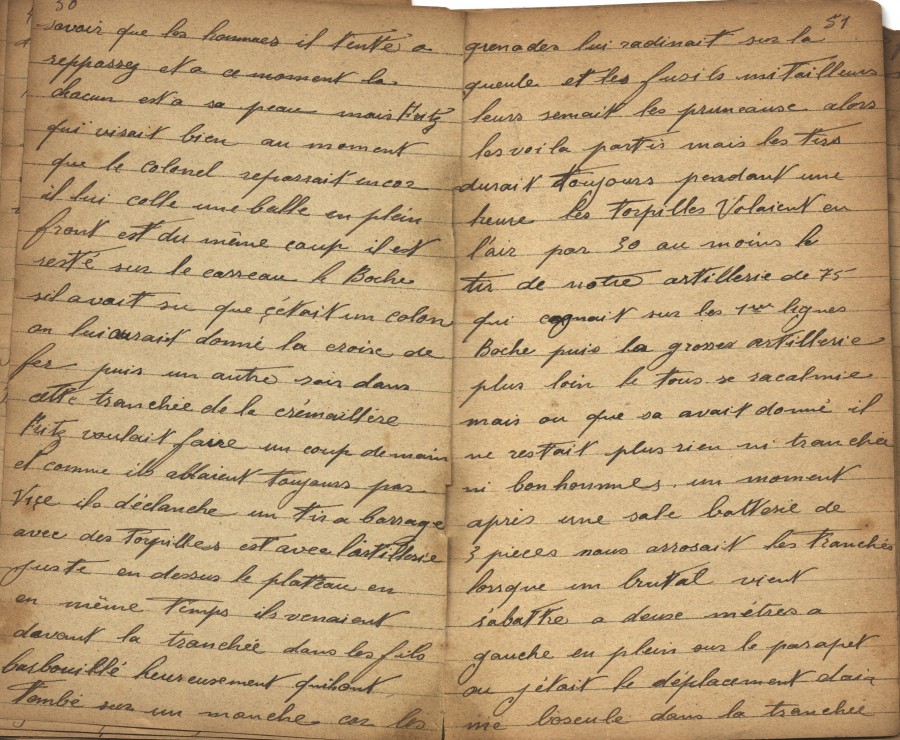 50
savoir que les hommes il tente a
reppassey et a ce moment la
chacun est a sa peau mais Fritz
qui visait bien au moment
que le colonel repassait encor
il lui colle une balle en plein
front est du même coup il est
resté sur le carreau le Boche
sil avait su que çétait un colon
on lui aurait donné la croix de
fer puis un autre soir dans
cette tranchée de la crémaillère
Fritz voulait faire un coup de main
et comme ils allaient toujours par
Viçe ils déclanche un tir a barrage
avec des Torpilles est avec l'artillerie
juste en dessus le plateau en
en même temps ils venaient
davant la tranchée dans les fils
barbouillé heureusement quihont
tombé sur un manche car les
51
grenades lui radinait sur la
gueule et les fusils mitailleurs
leurs semait les pruneause alors
les voila partis mais les tirs
durait toujours pendant une
heure les torpilles Volaient en
l'air par 30 au moins le
tir de notre artillerie de 75
qui cognait sur les 1ere lignes
Boche puis la grosses artillerie
plus loin le tous se racalmie
mais ou que sa avait donné il
ne restait plus rien ni tranchée
ni bonhommes. un moment
après une sale batterie de
3 pieces nous arrosait les tranchés
lorsque un brutal vient
s'abattre a deuse métres a
gauche en plein sur le parapet
ou j'était le déplacement dair
me boscule dans la tranchée